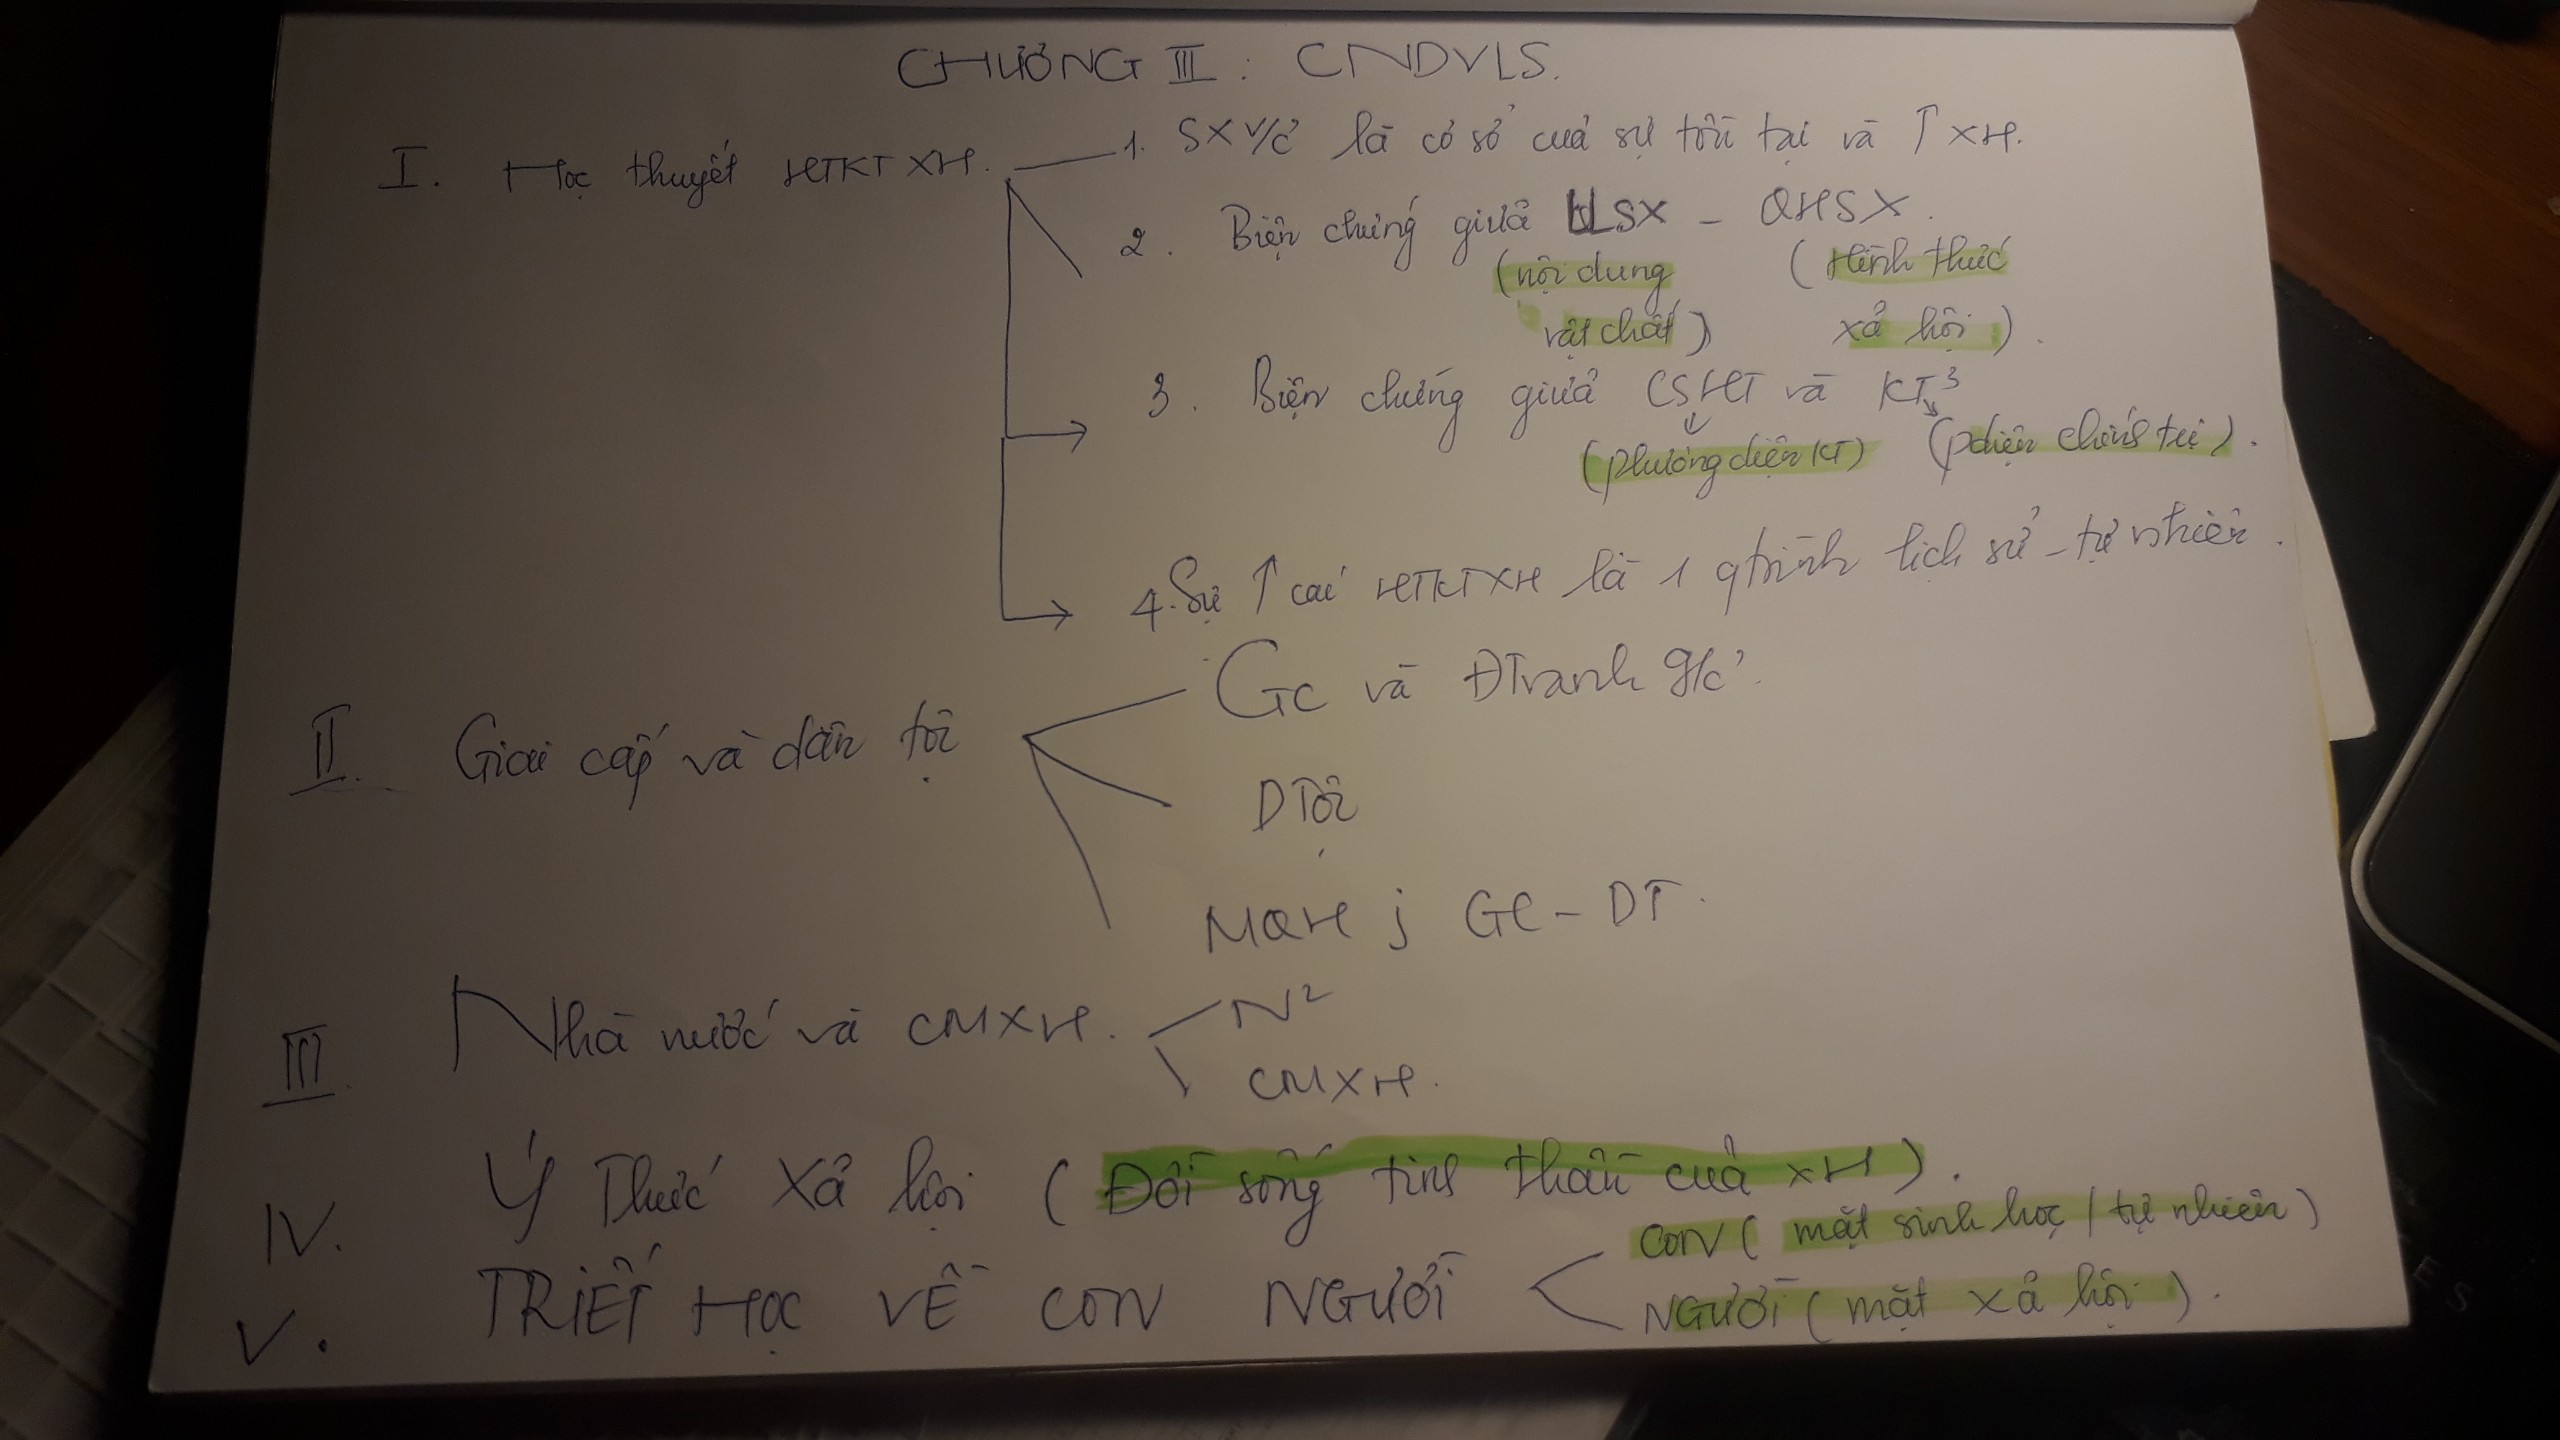 CHƯƠNG III : CNDVLS.
I. Học thuyết HTKTXH.
1. SXV/C là cơ sở của sự tồn tại và ↑ XH.
2. Biện chứng giữa LLSX – QHSX.
(nội dung vật chất) (Hình thức xã hội).
3. Biện chứng giữa CSHT và KT³
(phương diện KT) (pdiện chính trị).
4. Sự ↑ các HTKTXH là 1 qtrình lịch sử - tự nhiên.
II. Giai cấp và dân tộc
GC và ĐTranh g/c.
DTộc
MQH j GC – DT.
III. Nhà nước và CMXH.
N²
CMXH.
IV. Ý Thức Xã hội ( Đời sống tinh thần của XH ).
V. TRIẾT HỌC VỀ CON NGƯỜI
CON ( mặt sinh học / tự nhiên )
NGƯỜI ( mặt xã hội ).